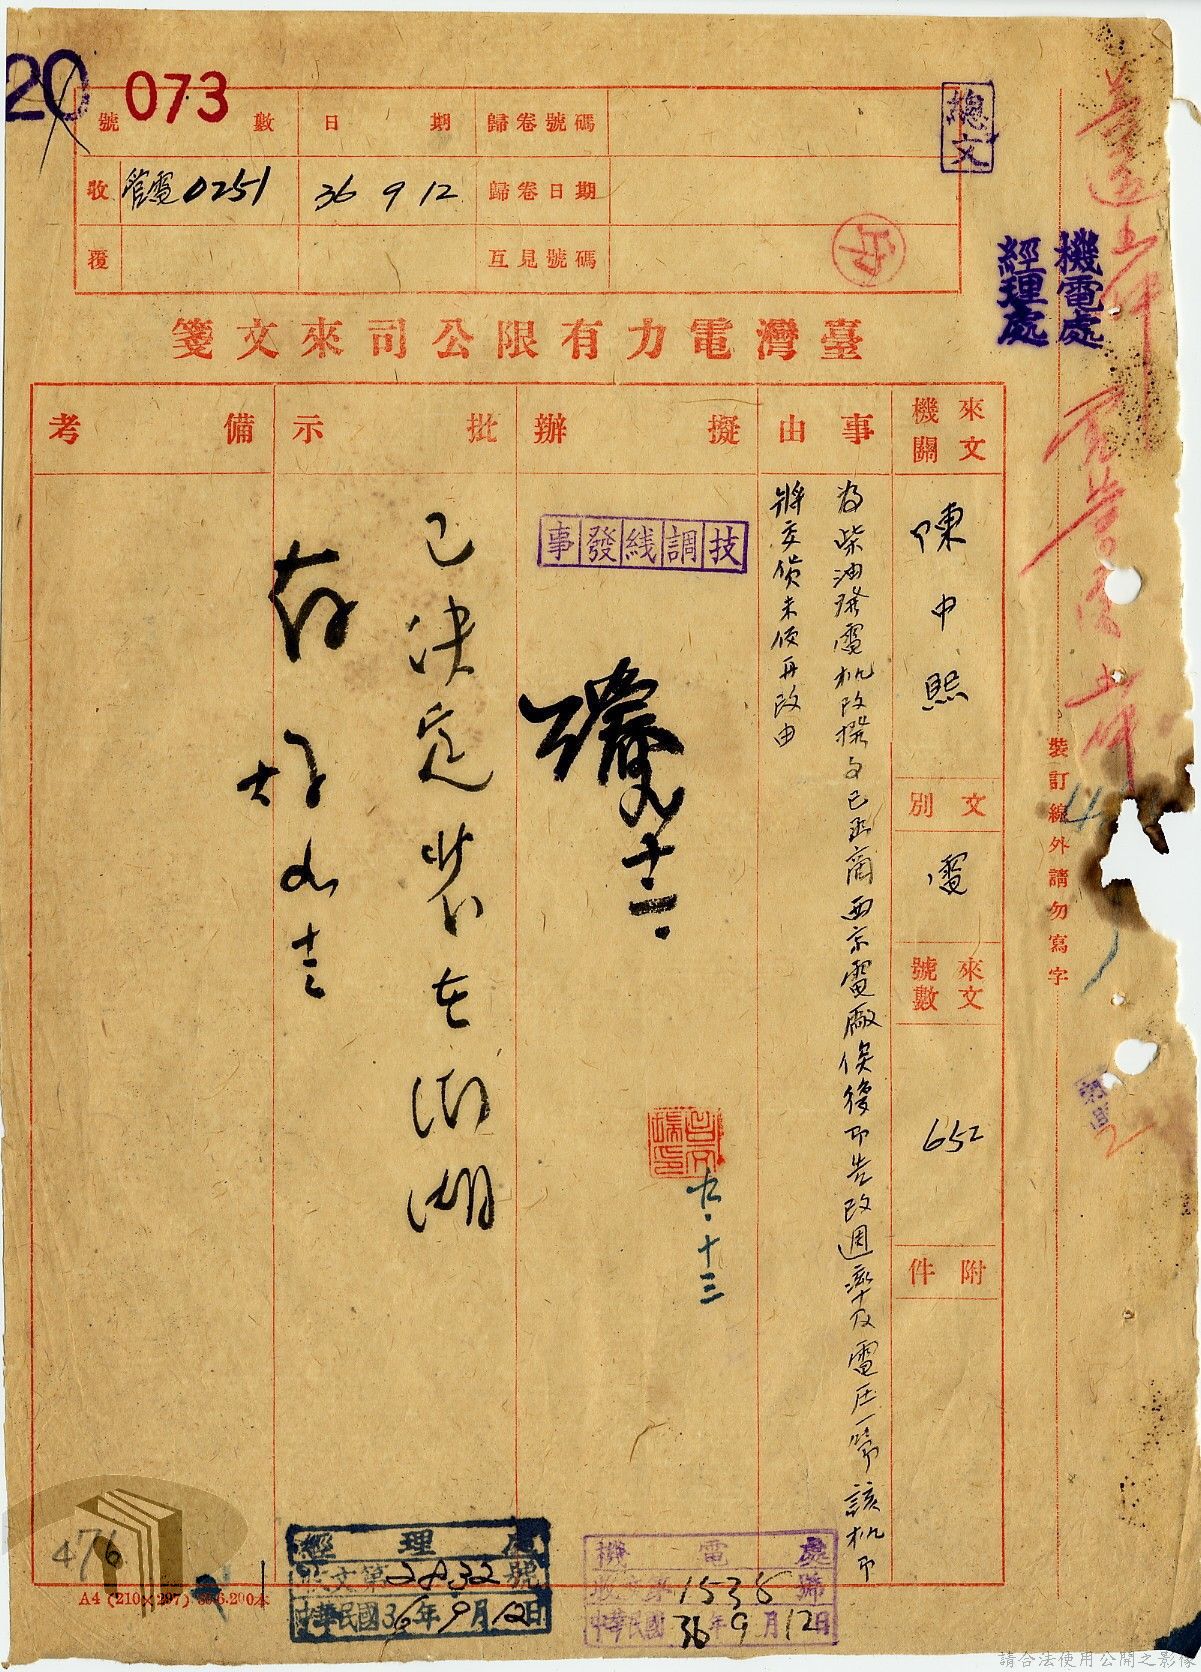 20
073
號數
日期
歸卷號碼
收
管電0251
36 9 12
歸卷日期
覆
互見號碼
總文
機電處
經理處
臺灣電力有限公司來文箋
來文機關
陳中熙
文別
電
來文號數
652
附件
事由
為柴油發電机改撥
已函商西京電廠俟復即告改週率及電压一節該机
將交貨未便再改由
擬辦
技調线發事
九.十三
批示
已決定裝在澎湖
存
備考
裝訂線外請勿寫字
476
A4 (210×297)
經理處
收文第2832號
中華民國36年9月12日
機電處
收文第1538號
中華民國36年9月12日
請合法使用公開之影像